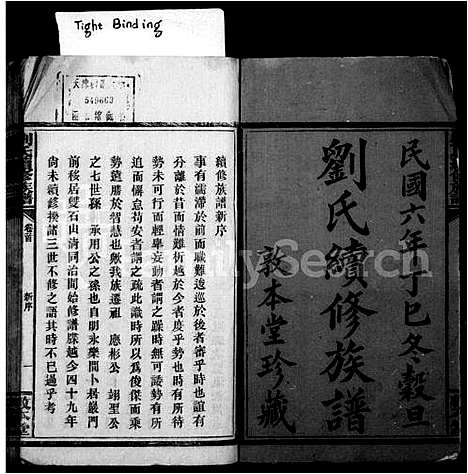 Tight Binding
民國六年丁巳冬穀旦
劉氏續修族譜
敦本堂珍藏
FamilySearch
549669
續修族譜新序
事有濡滯於前而職難逡巡於後者審乎時也誼有
分離於昔而情難析越於今者度乎勢也時有所待
時未可行而輕舉妄動者謂之躁時無可諉勢有所
迫而懈怠苟安者謂之疏此識時所以爲俊傑而乘
勢遠勝於智慧也歟我族遷祖 應彬公 翊聖公
之七世孫 承用公之孫也自朋永樂間卜居嚴門
前移居雙石山清同治間始修譜牒越今四十九年
尙未續修揆諸三世不修之語其時不已過乎考
卷首
新序
一
敦本堂